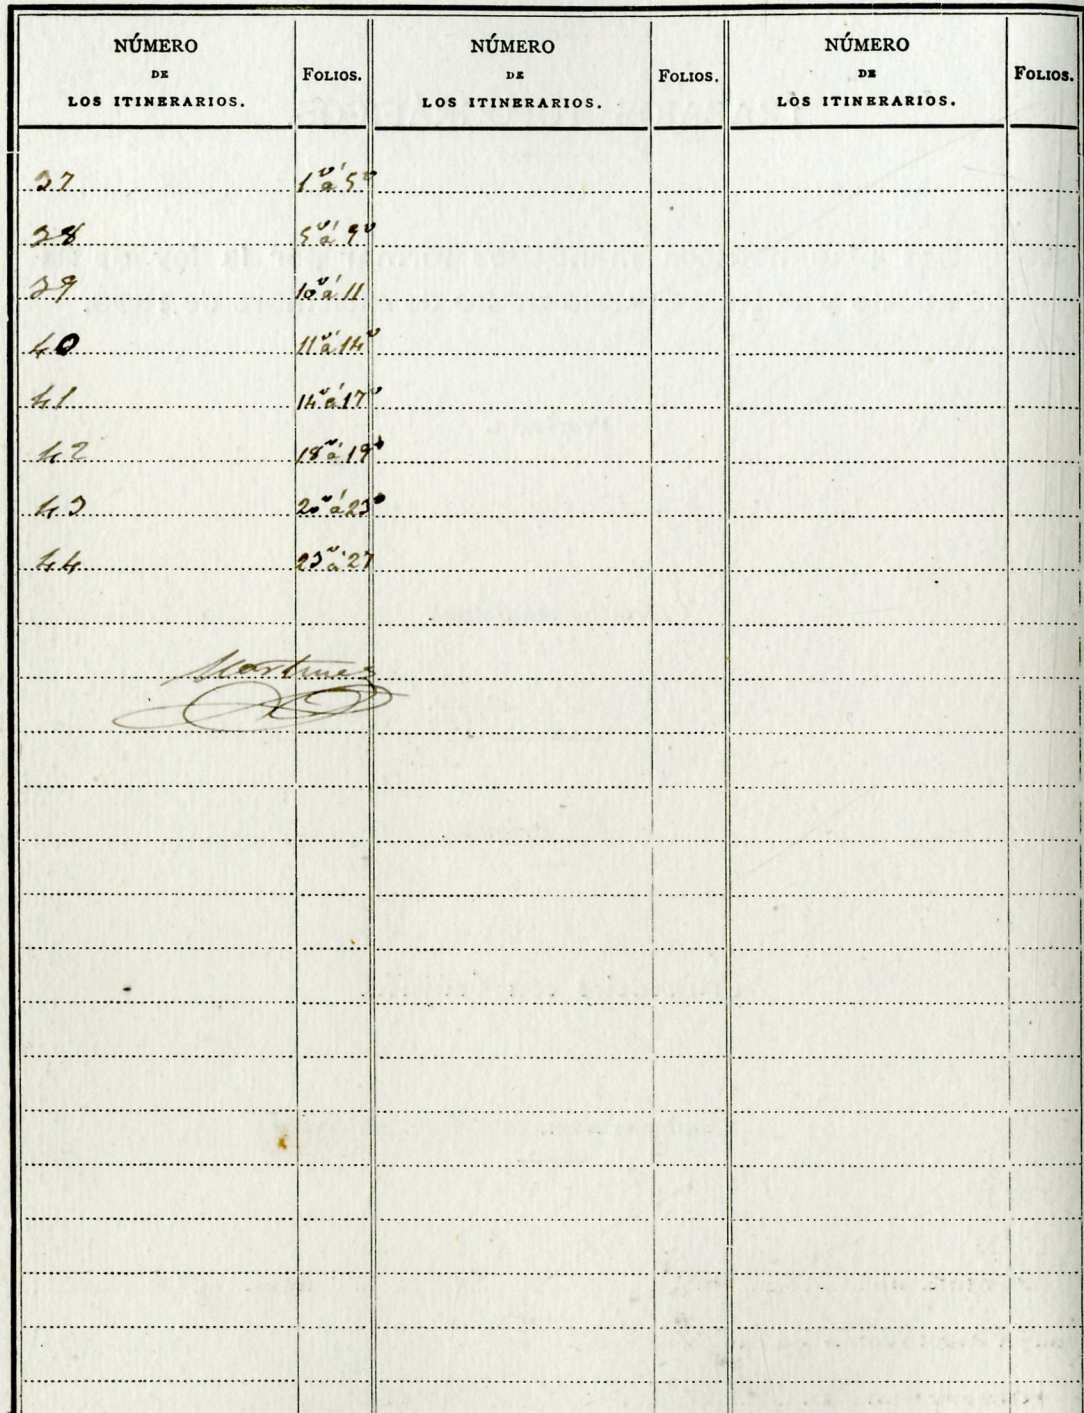 NÚMERO DE LOS ITINERARIOS. FOLIOS. NÚMERO DE LOS ITINERARIOS. FOLIOS. NÚMERO DE LOS ITINERARIOS. FOLIOS.
37 1ᵛ á 5ᵛ
38 5ᵛ á 9ᵛ
39 10ᵛ á 11
40 11ᵛ á 14ᵛ
41 14ᵛ á 17ᵛ
42 18ᵛ á 19ᵛ
43 20ᵛ á 23ᵛ
44 23ᵛ á 27
Martinez